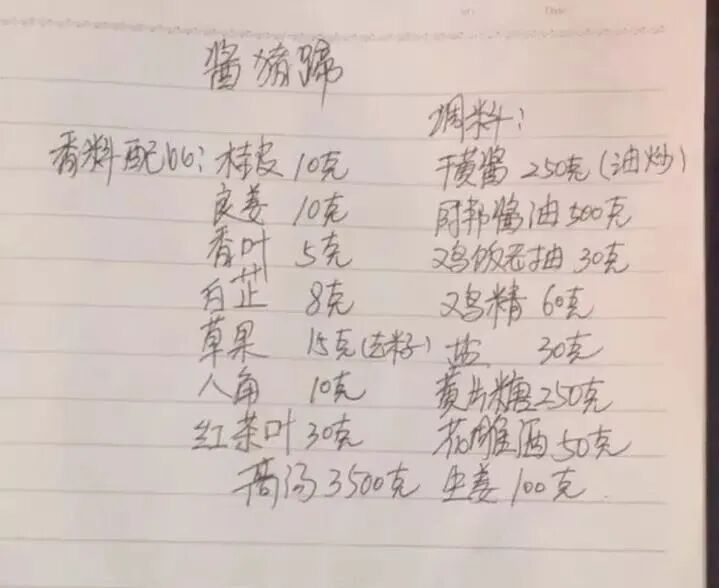 酱猪蹄
调料：
香料配比：桂皮 10克 干黄酱 250克(油炒)
良姜 10克 阿邦酱油 500克
香叶 5克 鸡饭老抽 30克
白芷 8克 鸡精 60克
草果 15克(去籽) 盐 30克
八角 10克 黄片糖 250克
红茶叶 30克 花雕酒 50克
高汤 3500克 生姜 100克